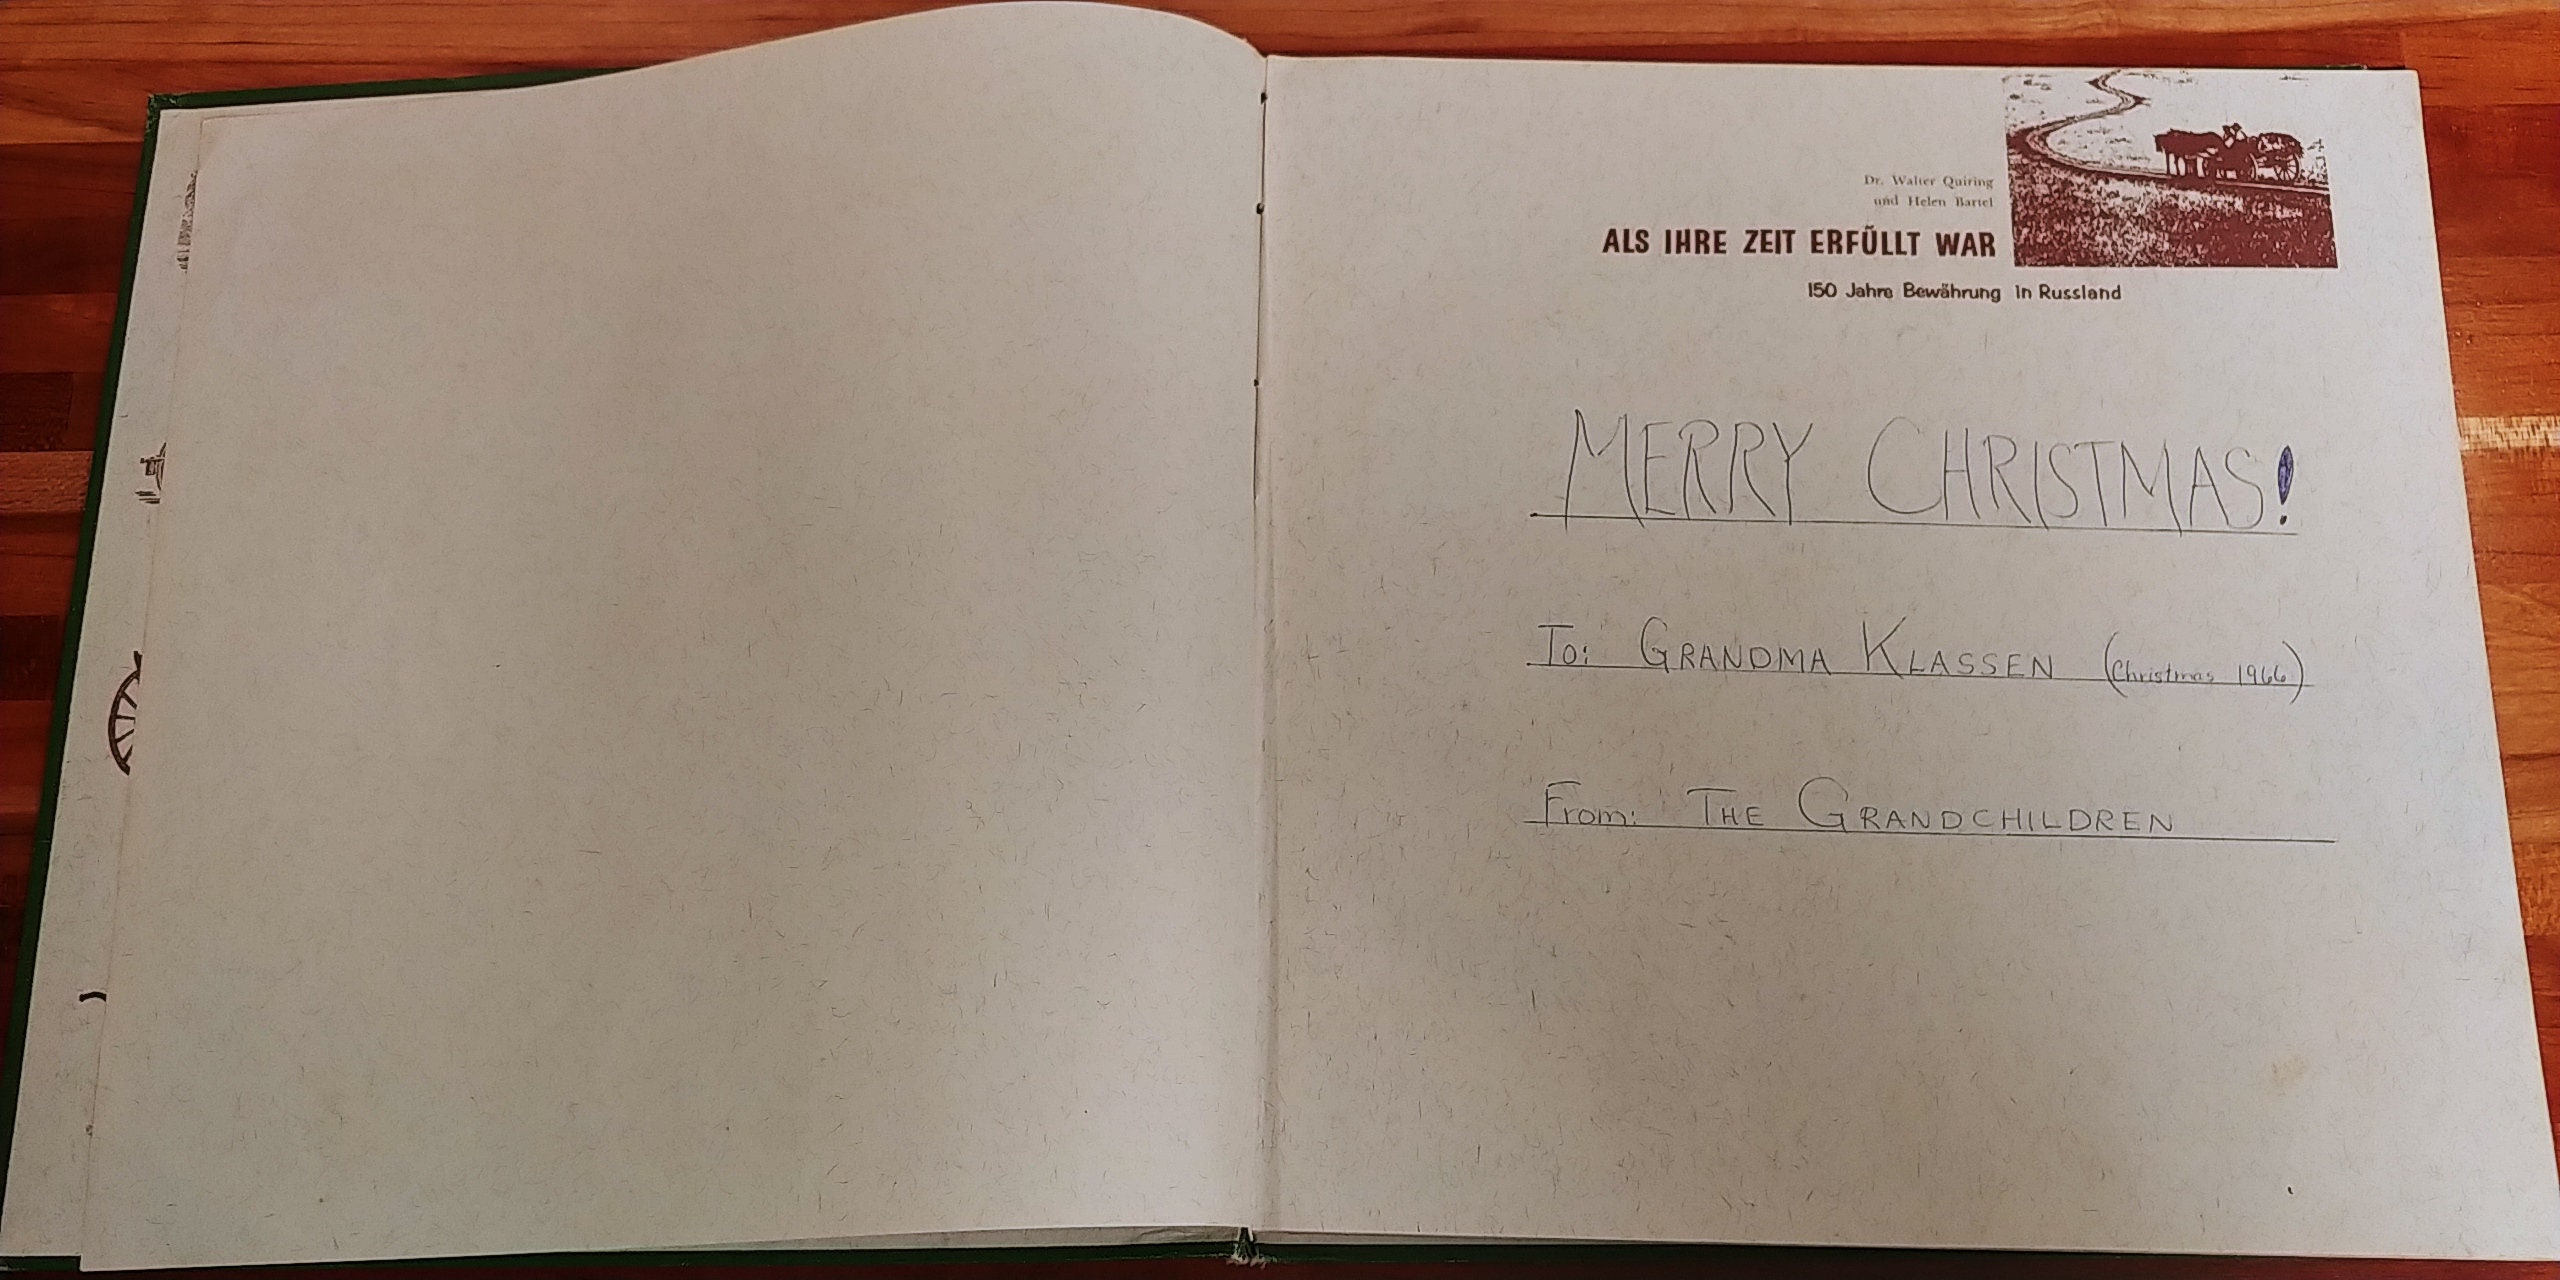 Dr. Walter Quiring
und Helen Bartel
ALS IHRE ZEIT ERFÜLLT WAR
150 Jahre Bewährung in Russland
MERRY CHRISTMAS!
To: GRANDMA KLASSEN (Christmas 1966)
From: THE GRANDCHILDREN